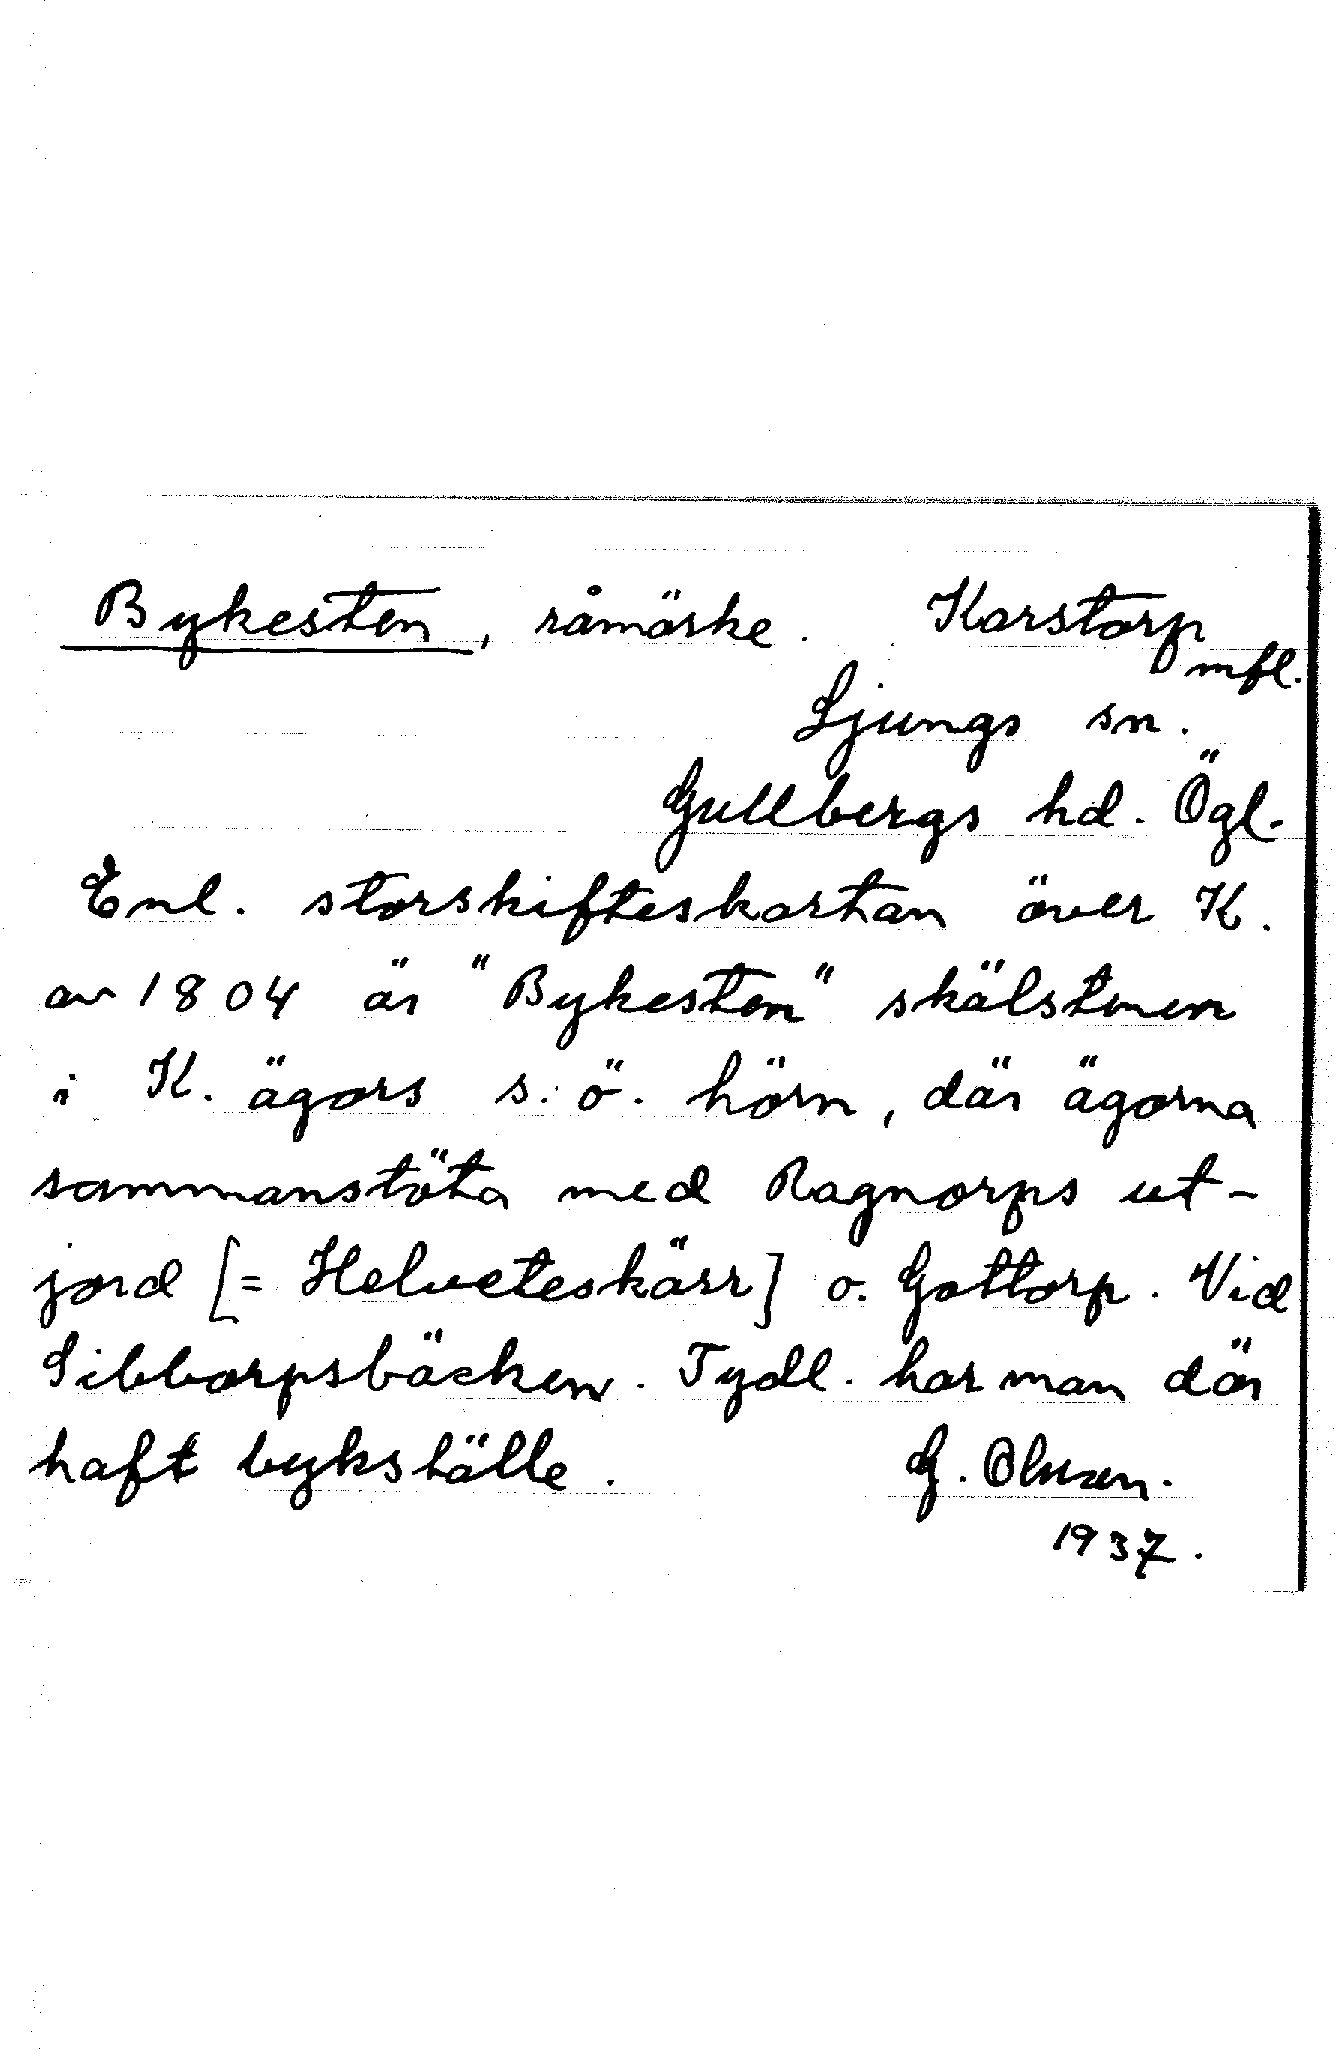 Bykesten, råmärke. Karstorp
mfl.
Ljungs sn.
Gullbergs hd. Ögl.
Enl. storskifteskartan över K.
av 1804 är "Bykesten" skälstenen
i K. ägors s. ö. hörn, där ägorna
sammanstöta med Ragnorps ut-
jord [= Helveteskärr] o. Gottorp. Vid
Sibborpsbäcken. Tydl. har man där
haft bykställe. G. Olsson.
1937.